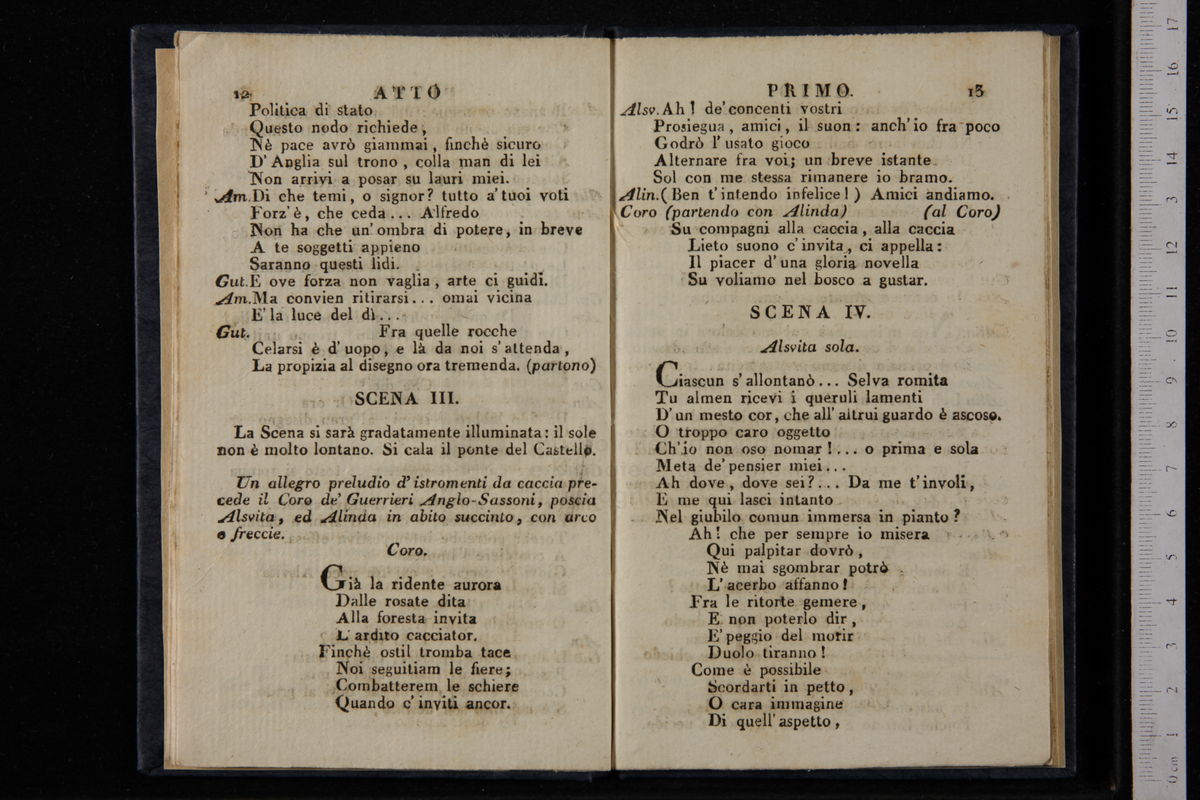 12 ATTO
Politica di stato
Questo nodo richiede,
Nè pace avrò giammai, finchè sicuro
D' Anglia sul trono, colla man di lei
Non arrivi a posar su lauri miei.
Am. Di che temi, o signor? tutto a' tuoi voti
Forz' è, che ceda... Alfredo
Non ha che un' ombra di potere, in breve
A te soggetti appieno
Saranno questi lidi.
Gut. E ove forza non vaglia, arte ci guidi.
Am. Ma convien ritirarsi... omai vicina
E' la luce del dì...
Gut. Fra quelle rocche
Celarsi è d' uopo, e là da noi s' attenda,
La propizia al disegno ora tremenda. (partono)
SCENA III.
La Scena si sarà gradatamente illuminata: il sole
non è molto lontano. Si cala il ponte del Castello.
Un allegro preludio d' istromenti da caccia pre-
cede il Coro de' Guerrieri Anglo-Sassoni, poscia
Alsvita, ed Alinda in abito succinto, con arco
e freccie.
Coro.
Già la ridente aurora
Dalle rosate dita
Alla foresta invita
L' ardito cacciator.
Finchè ostil tromba tace
Noi seguitiam le fiere;
Combatterem le schiere
Quando c' inviti ancor.
PRIMO. 13
Alsv. Ah! de' concenti vostri
Prosiegua, amici, il suon: anch' io fra poco
Godrò l' usato gioco
Alternare fra voi; un breve istante
Sol con me stessa rimanere io bramo.
Alin. (Ben t' intendo infelice!) Amici andiamo.
Coro (partendo con Alinda) (al Coro)
Su compagni alla caccia, alla caccia
Lieto suono c' invita, ci appella:
Il piacer d' una gloria novella
Su voliamo nel bosco a gustar.
SCENA IV.
Alsvita sola.
Ciascun s' allontanò... Selva romita
Tu almen ricevi i queruli lamenti
D' un mesto cor, che all' altrui guardo è ascoso.
O troppo caro oggetto
Ch' io non oso nomar!... o prima e sola
Meta de' pensier miei...
Ah dove, dove sei?... Da me t' involi,
E me qui lasci intanto
Nel giubilo comun immersa in pianto?
Ah! che per sempre io misera
Qui palpitar dovrò,
Nè mai sgombrar potrò
L' acerbo affanno!
Fra le ritorte gemere,
E non poterlo dir,
E' peggio del morir
Duolo tiranno!
Come è possibile
Scordarti in petto,
O cara immagine
Di quell' aspetto,
0 cm 1 2 3 4 5 6 7 8 9 10 11 12 13 14 15 16 17